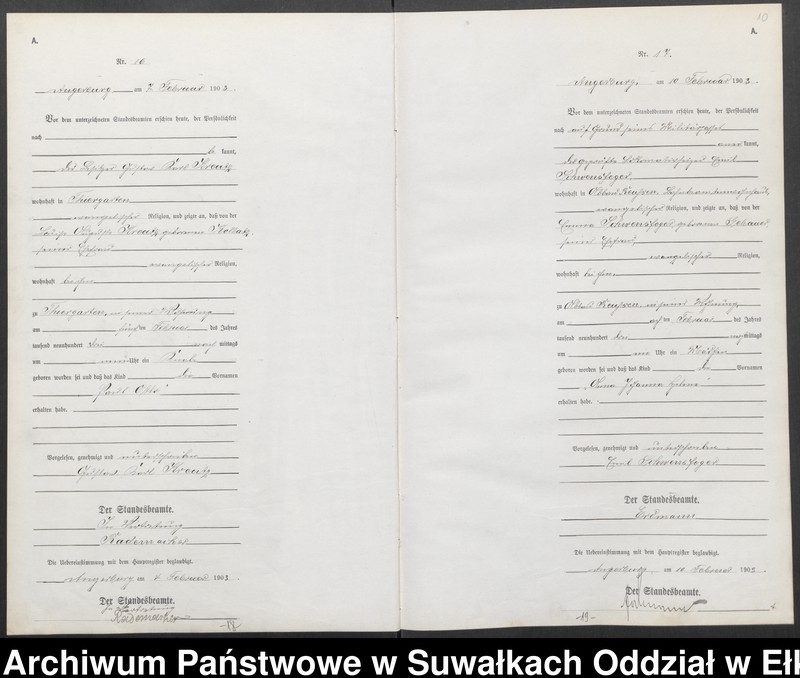 A.
Nr. 16
Angerburg am 7. Februar 1903.
Vor dem unterzeichneten Standesbeamten erschien heute, der Persönlichkeit
nach
be kannt,
der Besitzer Gustav Karl Kreutz
wohnhaft in Thiergarten
evangelischer Religion, und zeigte an, daß von der
Kreutz geborenen Kollak
seiner Ehefrau
evangelischer Religion,
wohnhaft bei ihm
zu Thiergarten, in seiner Wohnung
am fünften Februar des Jahres
tausend neunhundert drei nach mittags
um neun Uhr ein Knabe
geboren worden sei und daß das Kind den Vornamen
Otto
erhalten habe.
Vorgelesen, genehmigt und unterschrieben
Gustav Karl Kreutz
Der Standesbeamte.
In Vertretung
Rademacher
Die Uebereinstimmung mit dem Hauptregister beglaubigt.
Angerburg am Februar 1903.
Der Standesbeamte.
In Vertretung
Rademacher
-18-
10
A.
Nr. 17.
Angerburg, am 10 Februar 1903.
Vor dem unterzeichneten Standesbeamten erschien heute, der Persönlichkeit
nach auf Grund seines Militärpasses
aner kannt,
der geprüfte Lokomotivheizer Emil
Schwensfeger
wohnhaft in
evangelischer Religion, und zeigte an, daß von der
Emma Schwensfeger geborenen
seiner Ehefrau,
evangelischer Religion,
wohnhaft bei ihm
zu in seiner Wohnung
am Februar des Jahres
tausend neunhundert drei mittags
um Uhr ein Mädchen
geboren worden sei und daß das Kind die Vornamen
„Anna Johanna Helene“
erhalten habe.
Vorgelesen, genehmigt und unterschrieben
Emil Schwensfeger
Der Standesbeamte.
Erdmann
Die Uebereinstimmung mit dem Hauptregister beglaubigt.
Angerburg, am 10 Februar 1903.
Der Standesbeamte.
-19-
Archiwum Państwowe w Suwałkach Oddział w Ełk